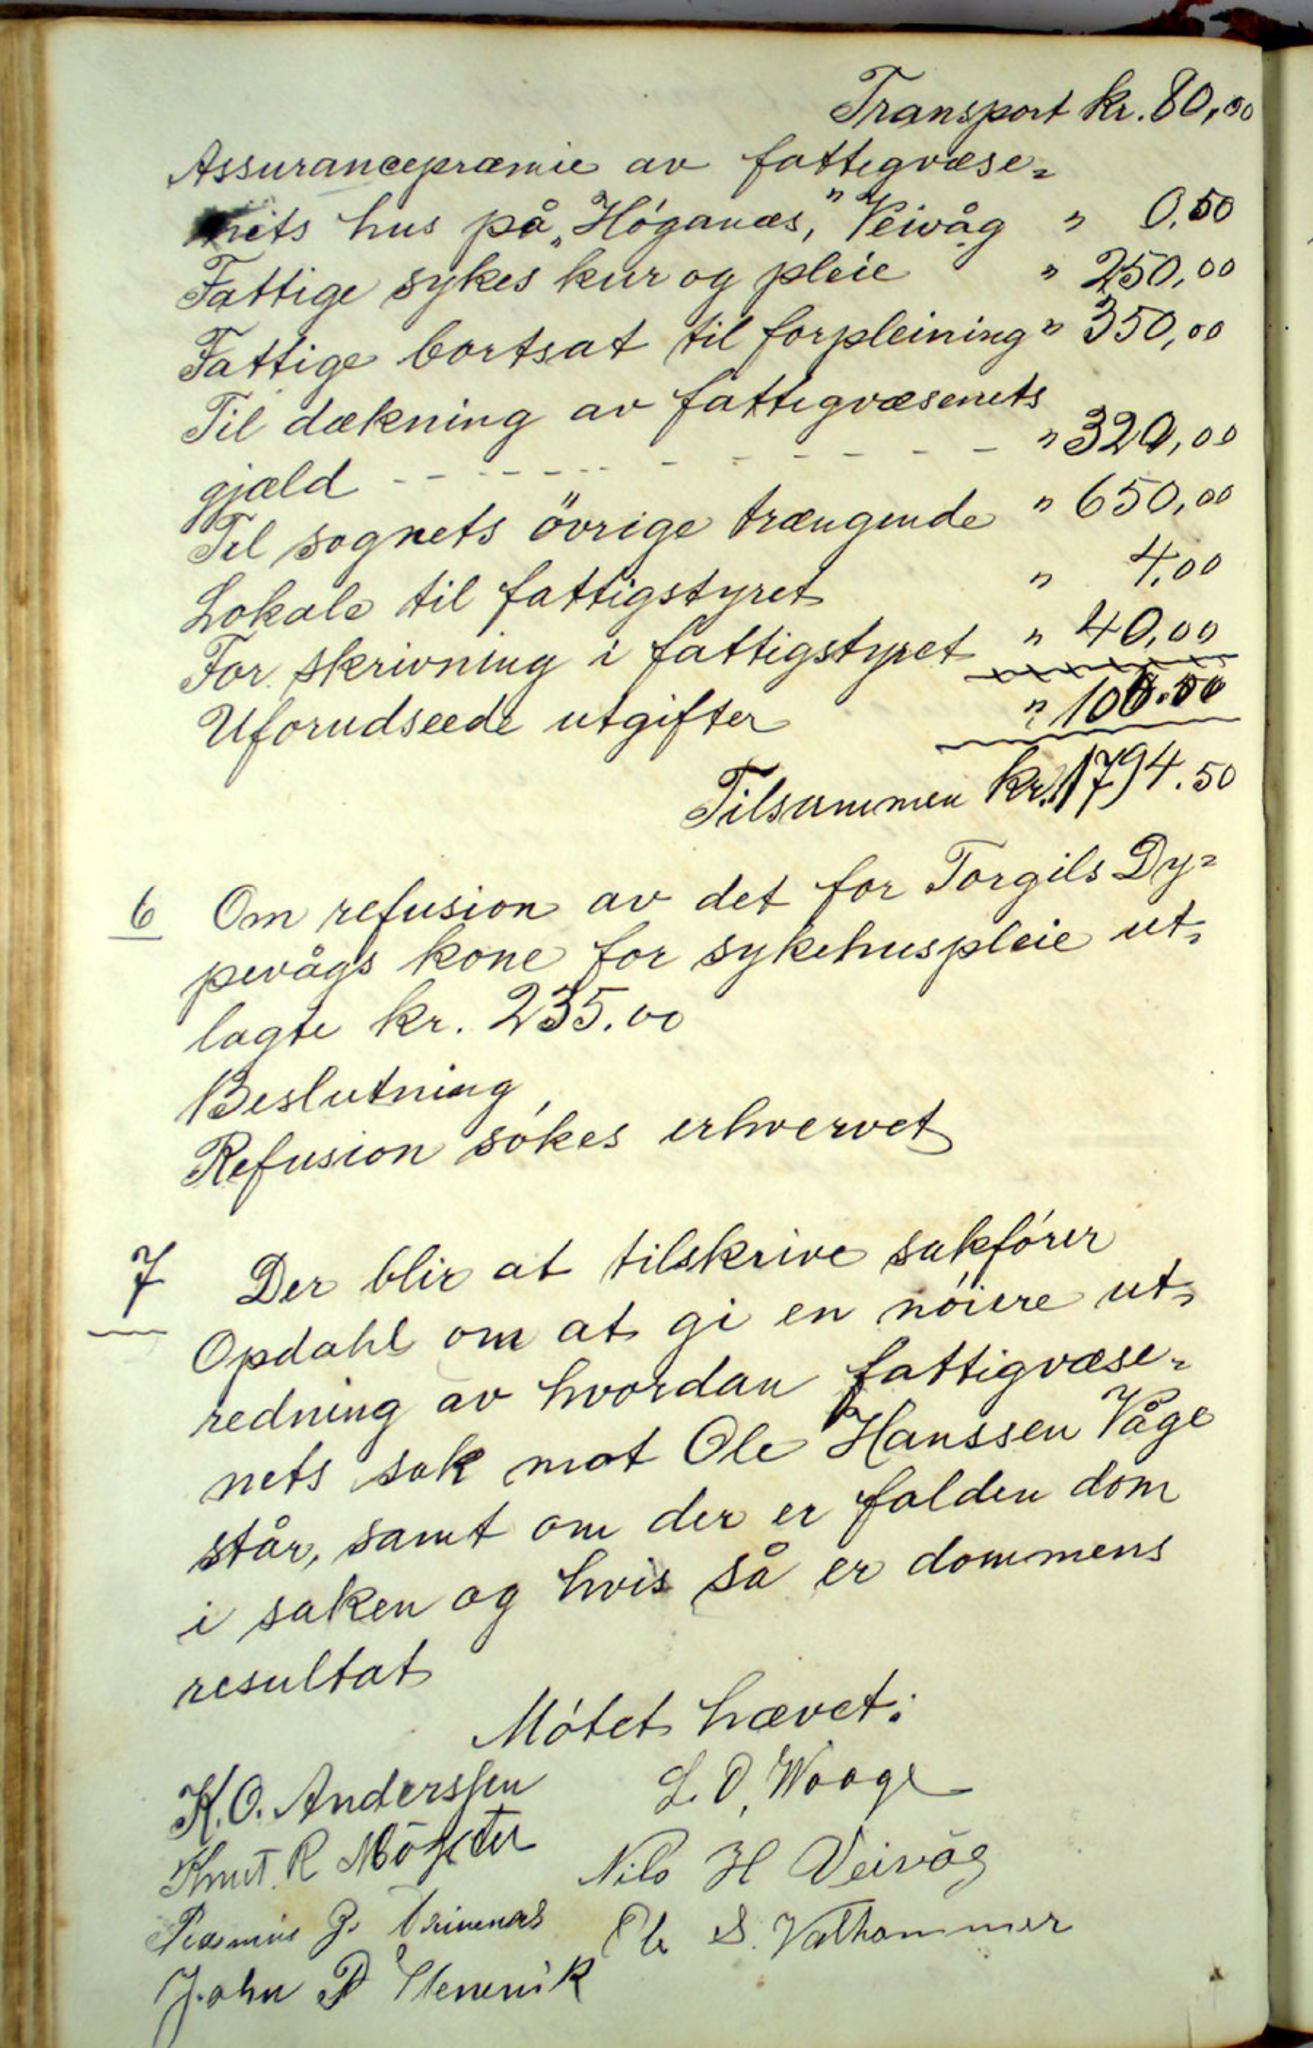 Transport kr. 80,00
Assurancepræmie av fattigvæse=
nets hus på „Höganæs," Veivåg " 0.50
Fattige sykes kur og pleie " 250,00
Fattige bortsat til forpleining " 350,00
Til dækning av fattigvæsenets
gjæld - - - - - - - - - - - " 320,00
Til sognets övrige trængende " 650,00
Lokale til fattigstyret " 4,00
For skrivning i fattigstyret " 40,00
Uforudseede utgifter " 100.00
Tilsammen kr. 1794.50
6 Om refusion av det for Torgils Dy=
pevågs kone for sykehuspleie ut=
lagte kr. 235.00
Beslutning,
Refusion sökes erhvervet
7 Der blir at tilskrive sakförer
Opdahl om at gi en nöiere ut=
redning av hvordan fattigvæse=
nets sak mot Ole Hanssen Våge
står, samt om der er falden dom
i saken og hvis så er dommens
resultat
Mötet hævet:
K. O. Anderssen L. O. Waage
Knut R Mögster Nils H Veivåg
Rasmus J. Ole S. Valhammer
John P Stenevik